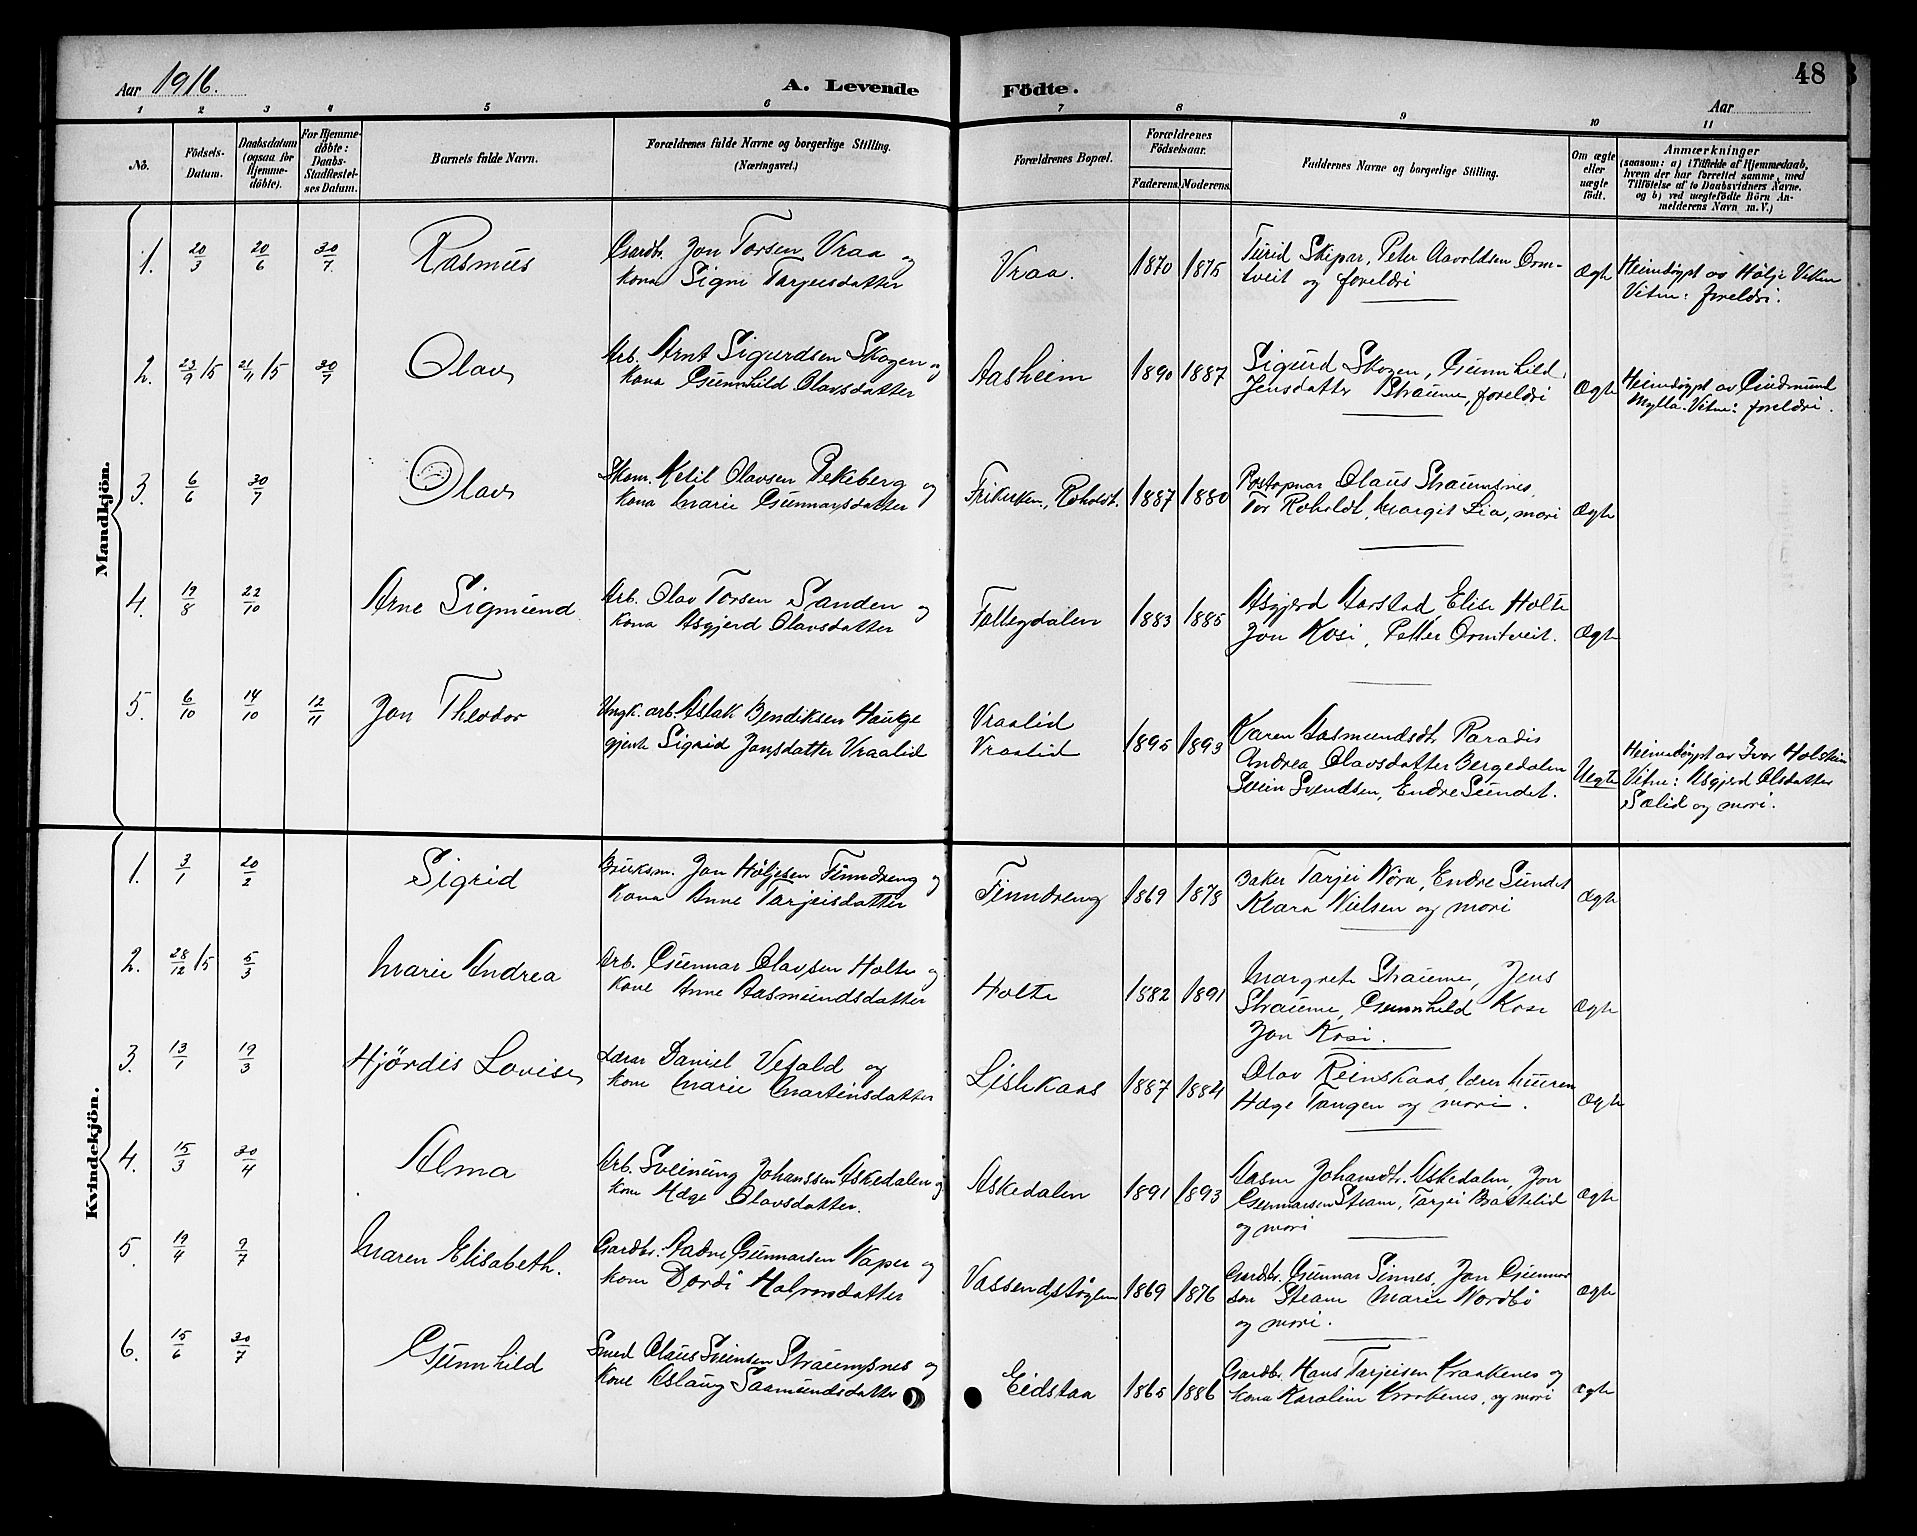 Aar 1916.
A. Levende Födte.
48
Aar
1 2 3 4 5 6 7 8 9 10 11
No.
Födsels-Datum.
Daabsdatum (ogsaa for Hjemme-döbte).
For Hjemme-döbte: Daabs-Stadfæstel-ses Datum.
Barnets fulde Navn.
Forældrenes fulde Navne og borgerlige Stilling. (Næringsvei.)
Forældrenes Bopæl.
Forældrenes Födselsaar.
Faderens. Moderens.
Faddernes Navne og borgerlige Stilling.
Om ægte eller uægte födt.
Anmærkninger
(saasom: a) i Tilfælde af Hjemmedaab, hvem der har forrettet samme, med Tilföielse af to Daabsvidners Navne, og b) ved uægtefödte Börn An-melderens Navn m.V.)
Mandkjön.
1. 20/3 20/6 30/7. Rasmus
Gardbr. Jon Torsen Vraa og
kona Signe Tarjeisdatter
Vraa. 1870 1875
Turid Skipar, Peter Aavoldsen Orm-
tveit og foreldri
Ægte
Heimdöypt av Hölje Vitun
Vitne: foreldri.
2. 23/9 15 21/11 15 30/7 Olav
Arb. Arnt Sigurdsen Skogen og
kona Gunnhild Olavsdatter
Aasheim 1890 1887
Sigurd Skogen, Gunnhild
Jensdatter Straume, foreldri
Ægte
Heimdöypt av Gudmund
Mylla. Vitne: foreldri.
3. 6/6 30/7 Olav
Skom. Ketil Olavsen Pekeberg og
kona Marie Gunnarsdatter
Roholdt. 1887 1880
Postopnar Olaus Straumsnes,
Tor Roholdt, Margit Lia, mori
Ægte
4. 19/8 22/10 Arne Sigmund
Arb. Olav Torsen Sanden og
kona Asgjerd Olavsdatter
Fallegdalen 1883 1885
Asgjerd Aarstad Elise Holte
Jon Kosi, Petter Ormtveit.
Ægte
5. 6/10 14/10 12/11 Jon Theodor
Ungk. arb. Aslak Bendiksen Hauge
gjente Sigrid Jonsdatter Vraalid
Vraalid
Vraalid
1895 1893
Karen Aasmundsdt. Paradis
Andrea Olavsdatter Bergedalen
Svein Svendsen, Endre Sundet.
Uegte
Heimdöypt av Ivar Holstein
Vitne: Asgjerd Olsdatter
Sælid og mori.
Kvindekjön.
1. 3/1 20/2 Sigrid
Bruksm. Jon Höljesen Finndreng og
kona Anne Tarjeisdatter
Finndreng 1869 1878
Baker Tarjei Nöra, Endre Sundet
Klara Nielsen og mori
Ægte
2. 28/12 15 5/3 Marie Andrea
Arb. Gunnar Olavsen Holte og
kone Anne Aasmundsdatter
Holte 1882 1891
Margrete Straume, Jens
Straume, Gunnhild Kosi
Jon Kosi.
Ægte
3. 13/1 19/3 Hjördis Lovise
Lærar Daniel Vefald og
kone Marie Martinsdatter
Lislkaas 1887 1884
Olav Reinskaas, lærer Muren
Hæge Tangen og mori.
Ægte
4. 15/3 30/4 Alma
Arb. Sveinung Johanssen Askedalen og
kone Hæge Olavsdatter.
Askedalen 1891 1893
Aasne Johansdt. Askedalen, Jon
Gunnarsen Steane, Tarjei Bakkelid
og mori
Ægte
5. 19/4 9/7 Maren Elisabeth.
Gardbr. Aadne Gunnarsen Naper og
kone Dordi Halvorsdatter
Vassendstöylen 1869 1876
Gardbr. Gunnar Sinnes, Jon Gunnar
sen Steane Marie Nordbö
og mori.
Ægte
6. 15/6 30/7 Gunnhild
Smed Olaus Sveinsen Straumsnes og
kone Aslaug Saamundsdatter
Eidstaa 1865 1886
Gardbr. Hans Tarjeisen Kraakenes og
kona Karoline Kraakenes, og mori
Ægte